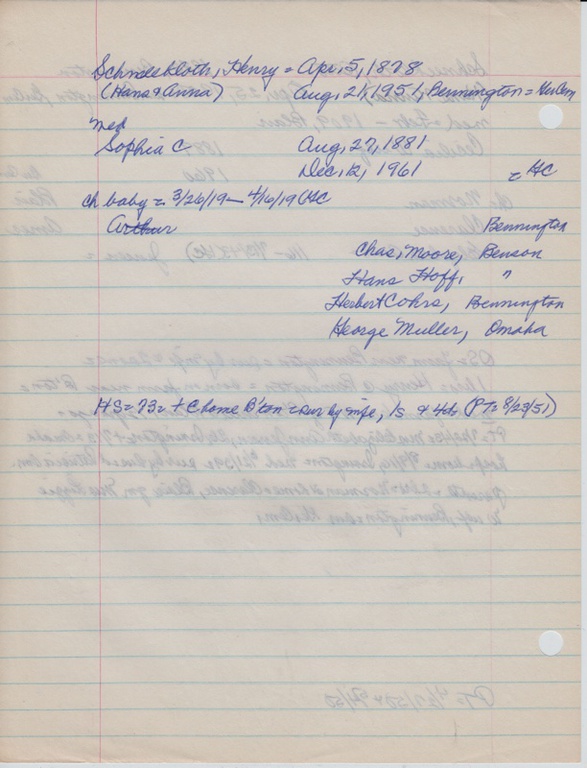 Schneekloth, Henry = Apr. 5, 1878
(Hans & Anna) Aug. 21, 1951, Bennington =
med
Sophia C Aug. 27, 1881
Dec. 12, 1961 = HC
ch baby = 3/26/19 — 4/16/19 (HC
Arthur Bennington
Chas, Moore, Benson
Hans Hoff, "
Herbert Cohrs, Bennington
George Muller, Omaha
HS = 73 = + @ home B'ton = sur by wife, 1s & 4ds (PT = 8/23/51)